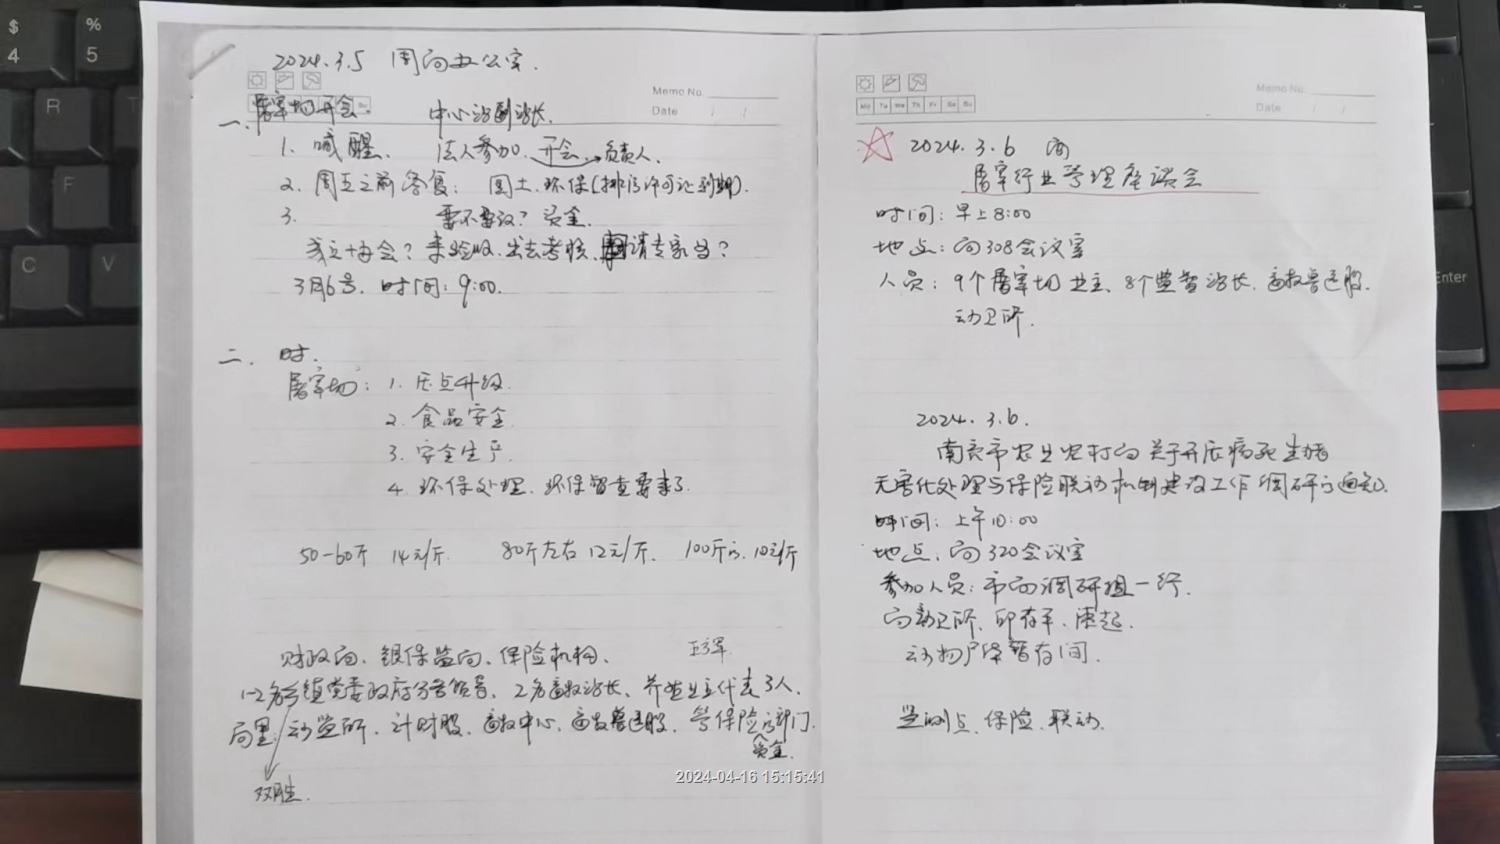 2024.3.5 周局办公室.
Memo No.
Date / /
一、屠宰场开会. 中心站到站长.
1. 喊醒、法人参加. 开会→负责人.
2. 周五之前答复: 国土、环保(排污许可证到期).
3. 要不要设? 资金.
成立协会? 来验收、出去考核、申请专家名?
3月6号. 时间: 9:00.
二、时.
屠宰场: 1. 压点升级.
2. 食品安全.
3. 安全生产.
4. 环保处理、环保督查要来了.
50-60斤 14元/斤. 80斤左右 12元/斤、 100斤的. 10元/斤
财政局、银保监局、保险机构、
1-2名乡镇党委政府分管领导、2名畜牧站长、养殖业主代表3人.
局里: 动监所、计财股、畜牧中心、畜牧兽医股、管保险的部门.
资金.
双胜.
Memo No.
Date / /
Mo Tu We Th Fr Sa Su
☆ 2024.3.6
屠宰行业管理座谈会
时间: 早上8:00
地点: 局308会议室
人员: 9个屠宰场业主、8个监督站长、畜牧兽医股.
动卫所.
2024.3.6.
南充市农业农村局关于开展病死生猪
无害化处理与保险联动机制建设工作调研的通知.
时间: 上午10:00
地点: 局320会议室
参加人员: 市局调研组一行.
局动卫所、
动物尸体暂存间.
监测点、保险、联动.
2024-04-16 15:15:41